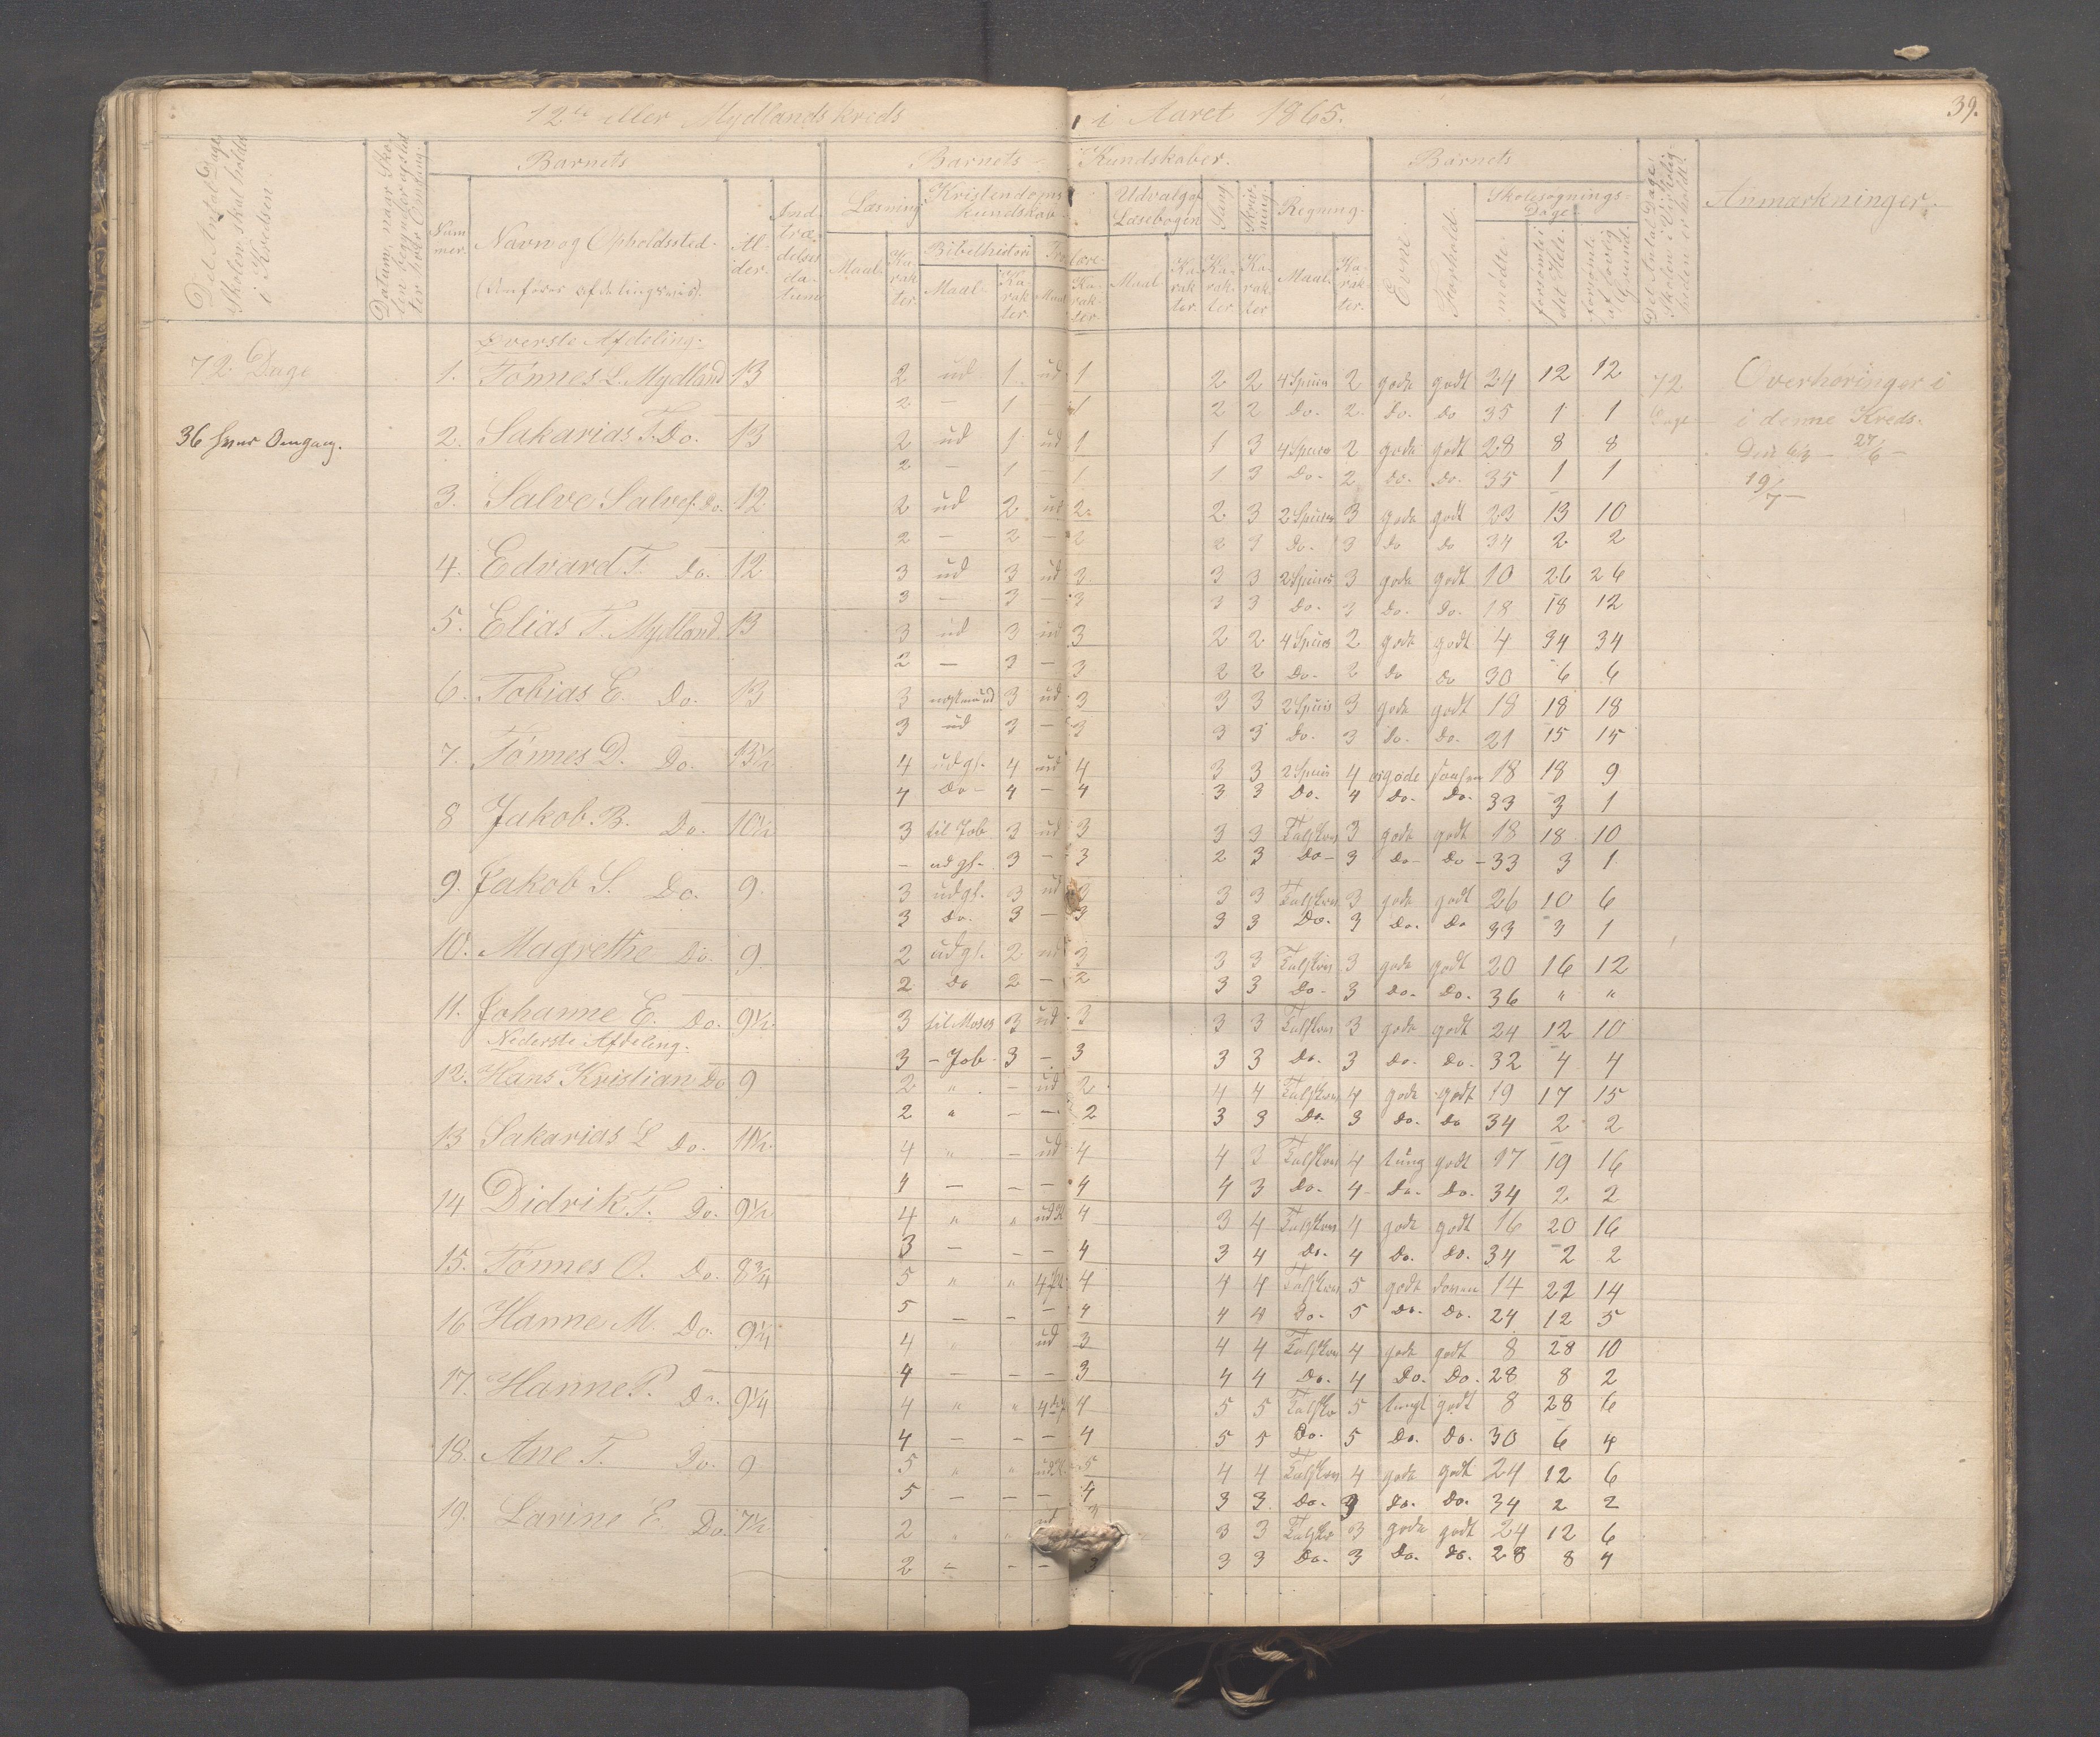 12te eller Mydlands kreds i Aaret 1865. 39.
Det Antal Dage Skolen skal holdes i Kredsen.
Datum, naar Skolen begynder og slut ter hver Omgang.
Barnets
Barnets Kundskaber.
Barnets
Det Antal Dage Skolen i Virkelig heden er holdt.
Anmærkninger.
Num mer.
Navn og Opholdssted.
(Anføres afdelingsvis).
Al- der.
Ind- træ- delses da- tum
Læsning
Kristendoms kundskab
Udvalg af Læsebogen
Sang
Skriv- ning
Regning
Evne.
Forhold.
Skolesøgnings- Dage
Bibelhistorie
Troeslære
Maal
Ka- rak ter.
mødte
forsømte i det Hele.
forsømte af lovlig Grund.
Øverste Afdeling.
72 Dage 1. Tønnes L. Mydland 13 2 ud 1 ud 1 2 2 4 Spcies 2 gode godt 24 12 12 72 Overhøringer i
2 – 1 – 1 2 2 Do. 2 do. do 35 1 1 Dage i denne Kreds.
36 hver Omgang. 2. Sakarias T. Do. 13 2 ud 1 ud 1 1 3 4 Species 2 gode godt 28 8 8 Den 6/3 – 27/6 –
2 – 1 – 1 1 3 Do. 2 do. do. 35 1 1 19/7 –
3. Salve Salves. Do. 12 2 ud 2 ud 2 2 3 2 Species 3 gode godt 23 13 10
2 – 2 – 2 2 3 Do. 3 do do 34 2 2
4. Edvard T. Do. 12 3 ud 3 ud 3 3 3 2 Species 3 gode godt 10 26 26
3 – 3 – 3 3 3 Do. 3 do. do. 18 18 12
5. Elias T. Mydland 13 3 ud 3 ud 3 2 2 4 Spcies 2 gode godt 4 34 34
2 – 3 – 3 2 2 Do. 2 do do 30 6 6
6. Tobias E. Do. 13 3 3 ud 3 3 3 2 Spcis 3 gode godt 18 18 18
3 ud 3 – 3 3 3 Do. 3 do. do. 21 15 15
7. Tønnes D. Do. 13½ 4 udgl. 4 ud 4 3 3 2 Spcis 4 gode 18 18 9
4 Do– 4 – 4 3 3 Do. 4 Do. Do. 33 3 1
8 Jakob B. Do. 10½ 3 til Job 3 ud 3 3 3 Talskrv 3 gode godt 18 18 10
– udgl. 3 – 3 2 3 Do– 3 Do– Do – 33 3 1
9. Jakob S. Do. 9. 3 udgl. 3 ud 3 3 3 Talskrv 3 gode godt 26 10 6
3 Do. 3 – 3 3 3 Do. 3 Do. Do 33 3 1
10. Magrethe Do. 9. 2 udgl. 2 ud 3 3 3 Talskriv 3 gode godt 20 16 12
2 Do 2 – 2 3 3 Do– 3 Do– Do. 36 " "
11. Johanne E. Do. 9½. 3 til Moses 3 ud 3 3 3 Talskrv 3 gode godt 24 12 10
Nederste Afdeling.
3 – Job. 3 – 3 3 3 Do. 3 Do. Do. 32 4 4
12. Hans Kristian Do 9 2 " – ud 2 4 4 Talskrv 4 gode godt 19 17 15
2 " – – 2 3 3 Do. 3 Do. Do 34 2 2
13 Sakarias L Do. 10½. 4 " – ud 4 4 3 Talskrv 4 tung godt 17 19 16
4 – – – 4 4 3 Do. 4 Do. Do. 34 2 2
14 Didrik T. Do. 9½ 4 " " 4 3 4 Talskrv 4 gode godt 16 20 16
3 – – – 4 3 4 Do. 4 Do. Do. 34 2 2
15. Tønnes O. Do. 8¾ 5 " " 4 4 4 Talskrv 5 godt doven 14 22 14
5 – – – 4 4 4 Do. 5 Do. Do. 24 12 5
16 Hanne M. Do. 9¼ 4 " ud 3 4 4 Talskrv 4 gode godt 8 28 10
4 – – – 3 4 4 Do. 4 Do. Do. 28 8 2
17. Hanne P. Do. 9¼ 4 " " 4 5 5 Talskv 5 tungt godt 8 28 6
4 – – – 4 5 5 Do. 5 Do. Do. 30 6 4
18. Ane T. Do. 9 5 " " 5 4 4 Talskrv 4 gode godt 24 12 6
5 – – – 4 3 3 Do. 3 Do. Do. 34 2 2
19. Larine E. Do. 7½ 2 " " ud 3 3 3 Talskv 3 gode godt 24 12 6
2 – – – 3 3 3 Do. 3 Do. Do. 28 8 4